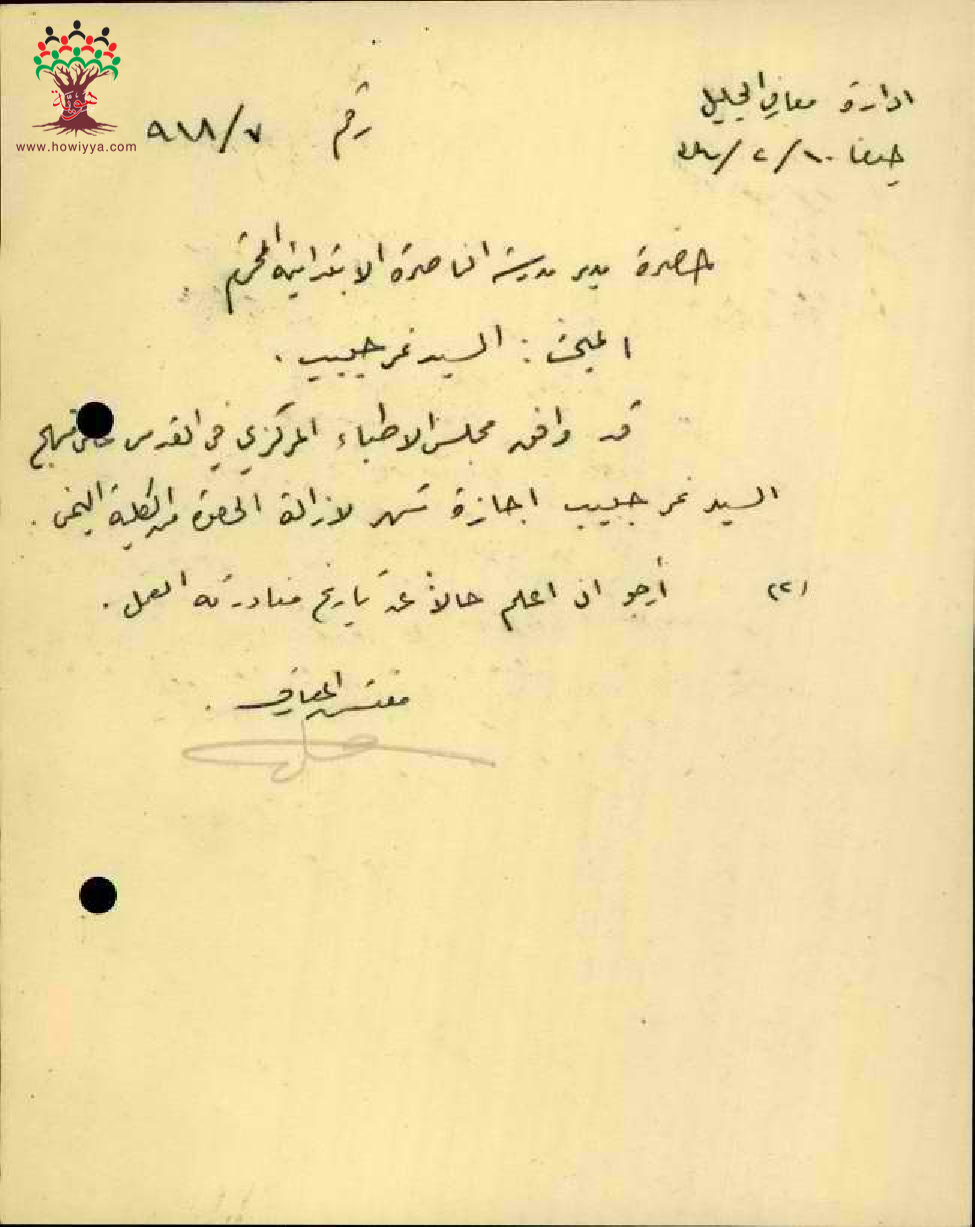 هوية
www.howiyya.com
ادارة معارف الجليل
رقم ٧/٩١٨
حيفا
حضرة مدير مدرسة الناصرة الابتدائية المحترم
المبحث : السيد نمر حبيب .
قد وافق مجلس الاطباء المركزي في القدس على
السيد نمر حبيب اجازة شهر لازالة الحصوة من الكلية اليمنى .
(٢) أرجو ان اعلم حالاً عن تاريخ مغادرته العمل .
مفتش المعارف .